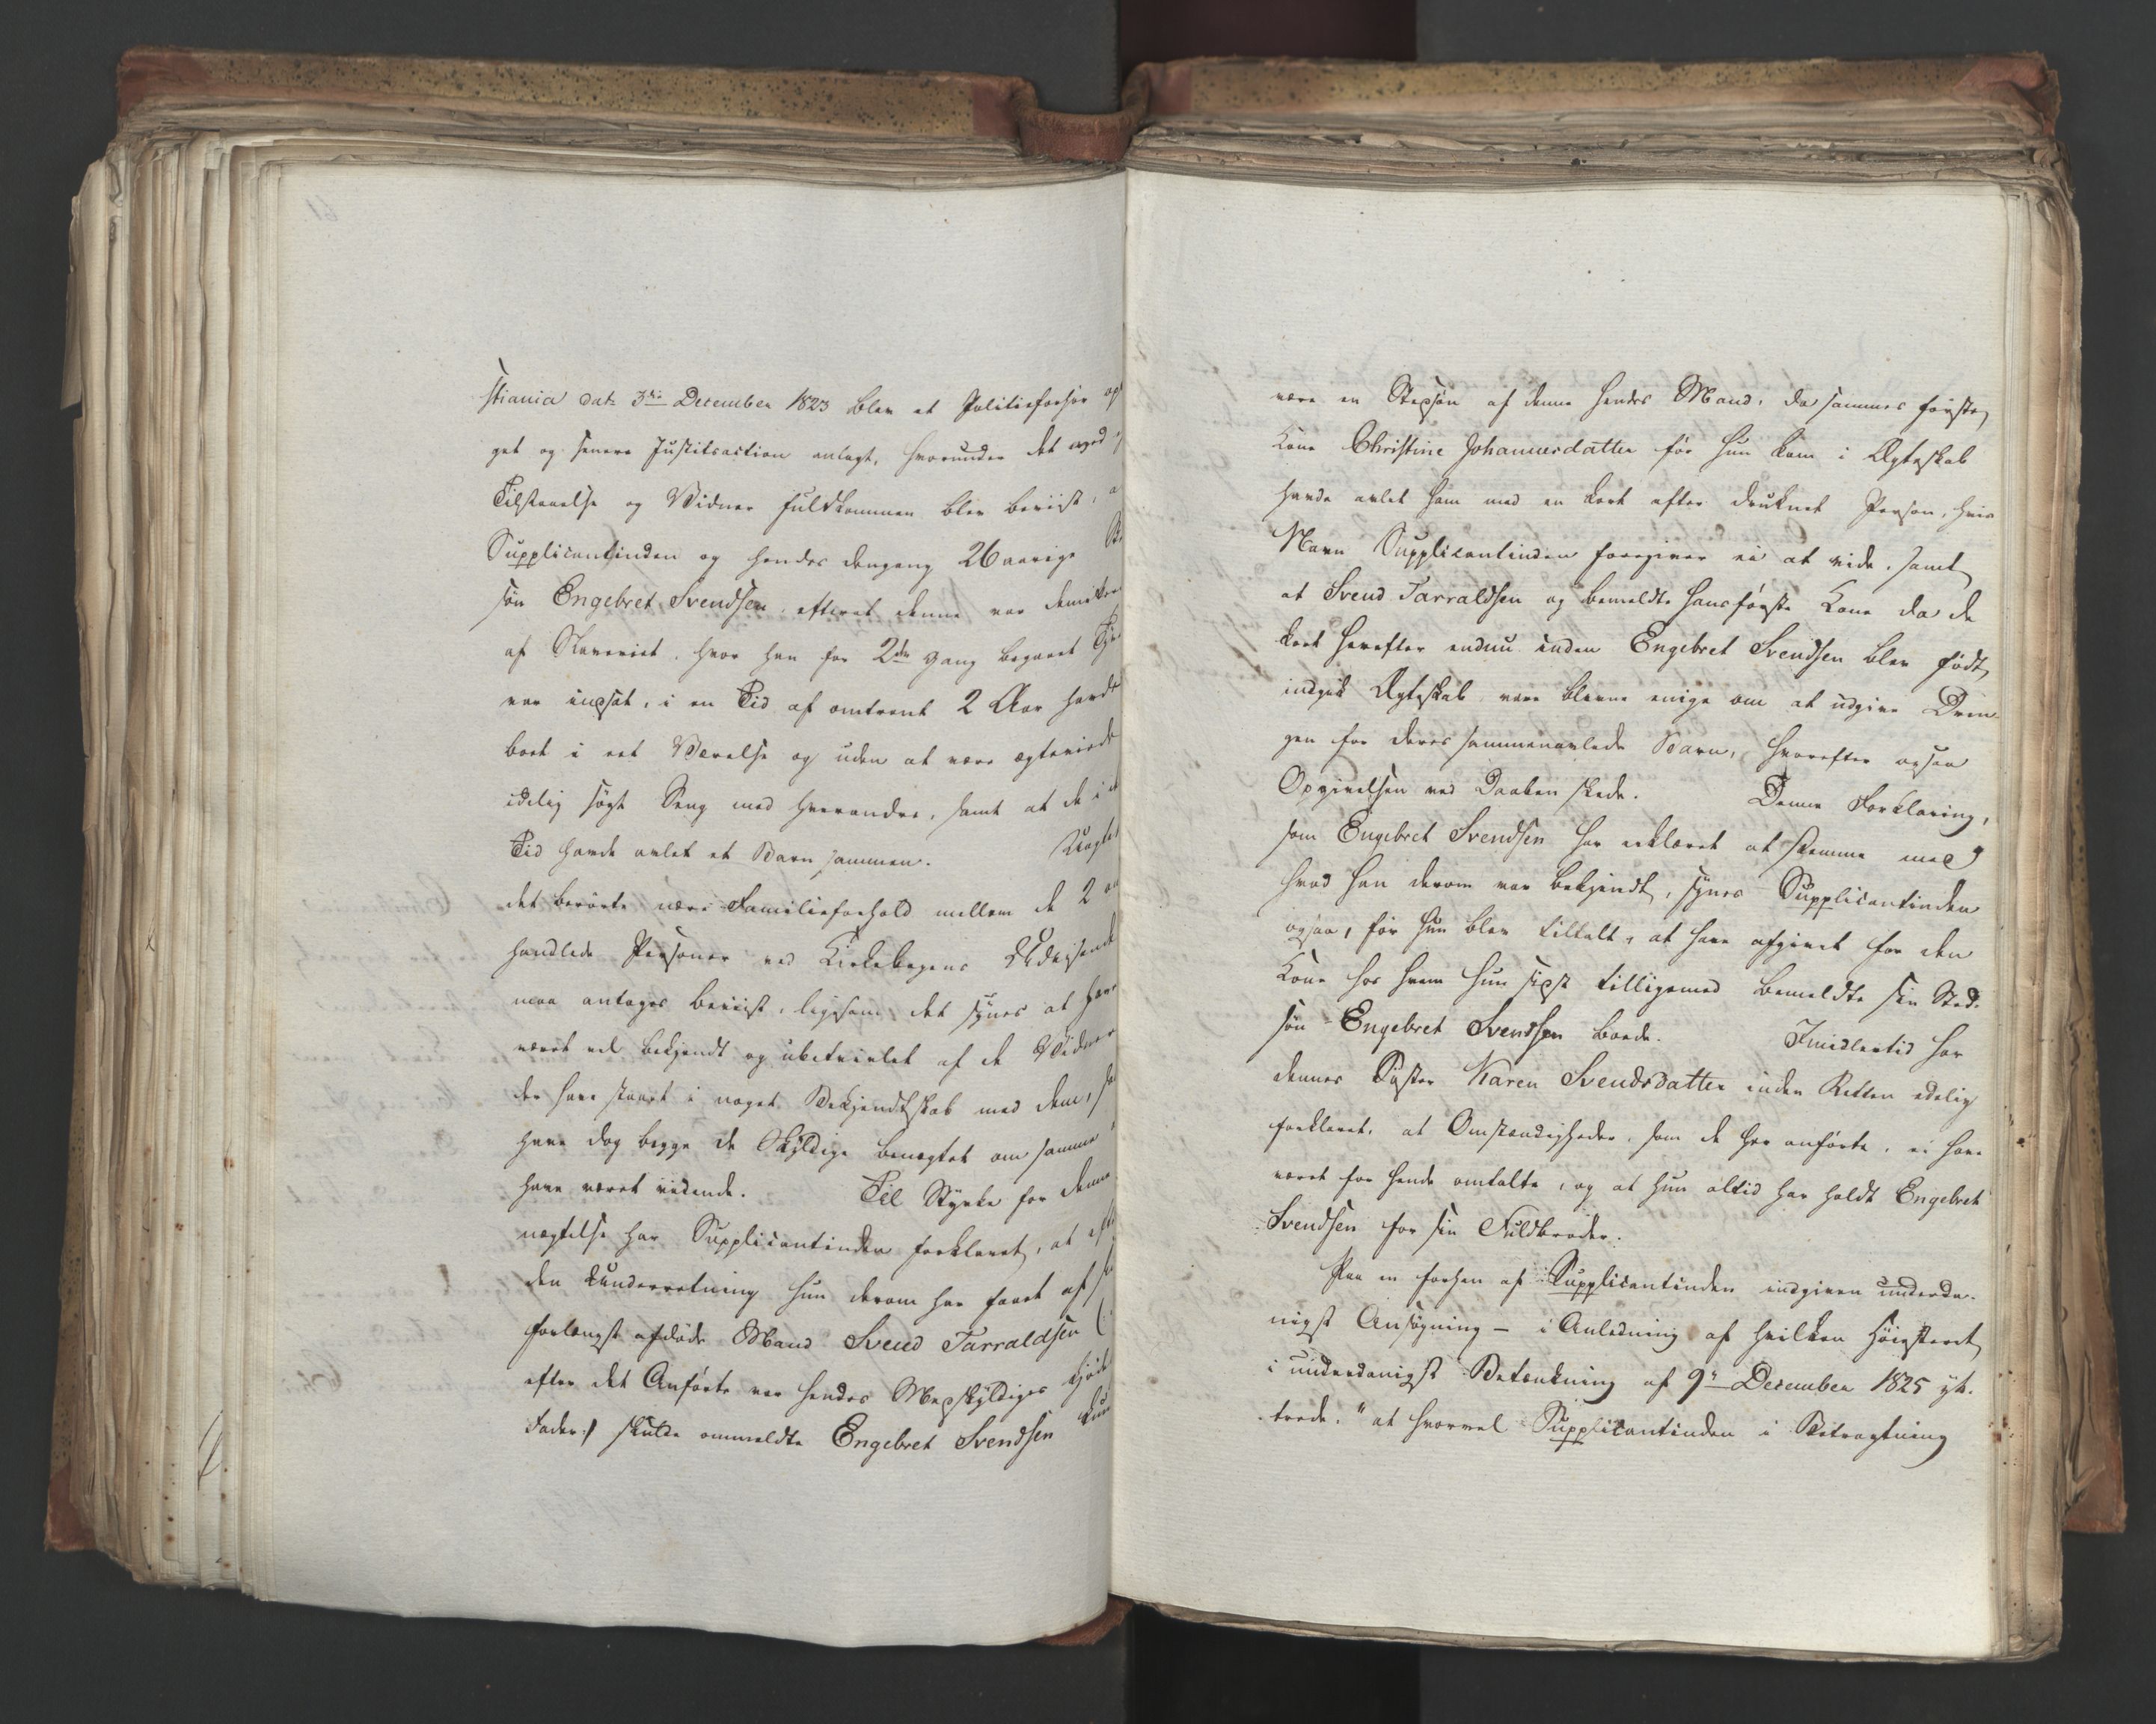 stiania dat: 3die December 1823 blev et Politieforhør op
get og senere Justitsaction anlagt, hvorunder det ved
Tilstaaelse og Vidner fuldkommen blev beviist, a
Supplicantinden og hendes dengang 26aarige St
søn Engebret Svendsen, efterat denne var
af Slaveriet, hvor han for 2den Gang begaaet Ty
var indsat, i en Tid af omtrent 2 Aar havde
boet i eet Værelse og uden at være ægteviede
idelig søgt Seng med hverandre, samt at de i d
Tid havde avlet et Barn sammen. Uagtet
det berørte nære Familieforhold mellem de 2 om
handlede Personer ved Kirkebogens Udvisende
maa antages beviist, ligesom det synes at have
været vel bekjendt og ubetvivlet af de Vidner
der have staaet i noget Bekjendtskab med dem, sa
have dog begge de Skyldige benægtet om samme
have været vidende. Til Styrke for denne
nægtelse har Supplicantinden forklaret, at efter
den Underretning hun derom har faaet af si
forlængst afdøde Mand Svend Tarraldsen (:
efter det Anførte var hendes Medskyldiges kjøde
Fader:/ skulde ommeldte Engebret Svendsen kun
være en Stedsøn af denne hendes Mand, da sammes første
Kone Christine Johannesdatter før hun kom i Ægteskab
havde avlet ham med en kort efter druknet Person, hvis
Navn Supplicantinden foregiver ei at vide, samt
at Svend Tarraldsen og bemeldte hans første Kone da de
kort herefter endnu inden Engebret Svendsen blev født,
indgik Ægteskab vare blevne enige om at udgive Dren-
gen for deres sammenavlede Barn, hvorefter ogsaa
Opgivelsen ved Daaben skede. Denne Forklaring,
som Engebret Svendsen har erklæret at stemme med
hvad han derom var bekjendt, synes Supplicantinden
ogsaa, før hun blev tiltalt, at have afgivet for den
Kone hos hvem hun sidst tilligemed bemeldte sin Sted-
søn Engebret Svendsen boede. Imidlertid har
dennes Søster Karen Svendsdatter inden Retten edelig
forklaret, at Omstændigheder, som de her anførte, ei have
været for hende omtalte, og at hun altid har holdt Engebret
Svendsen for sin Fuldbroder.
Paa en forhen af Supplicantinden indgiven underda-
nigst Ansøgning – i Anledning af hvilken Høiesteret
i underdanigst Betænkning af 9de December 1825 yt-
trede, "at hvorvel Supplicantinden i Betragtning